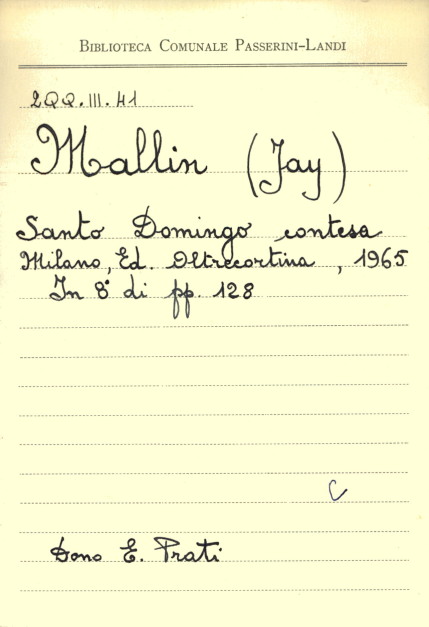 BIBLIOTECA COMUNALE PASSERINI-LANDI
2QQ.III.41
Mallin (Jay)
Santo Domingo contesa
Milano, Ed. Oltrecortina, 1965
In 8° di pp. 128
C
Dono E. Prati